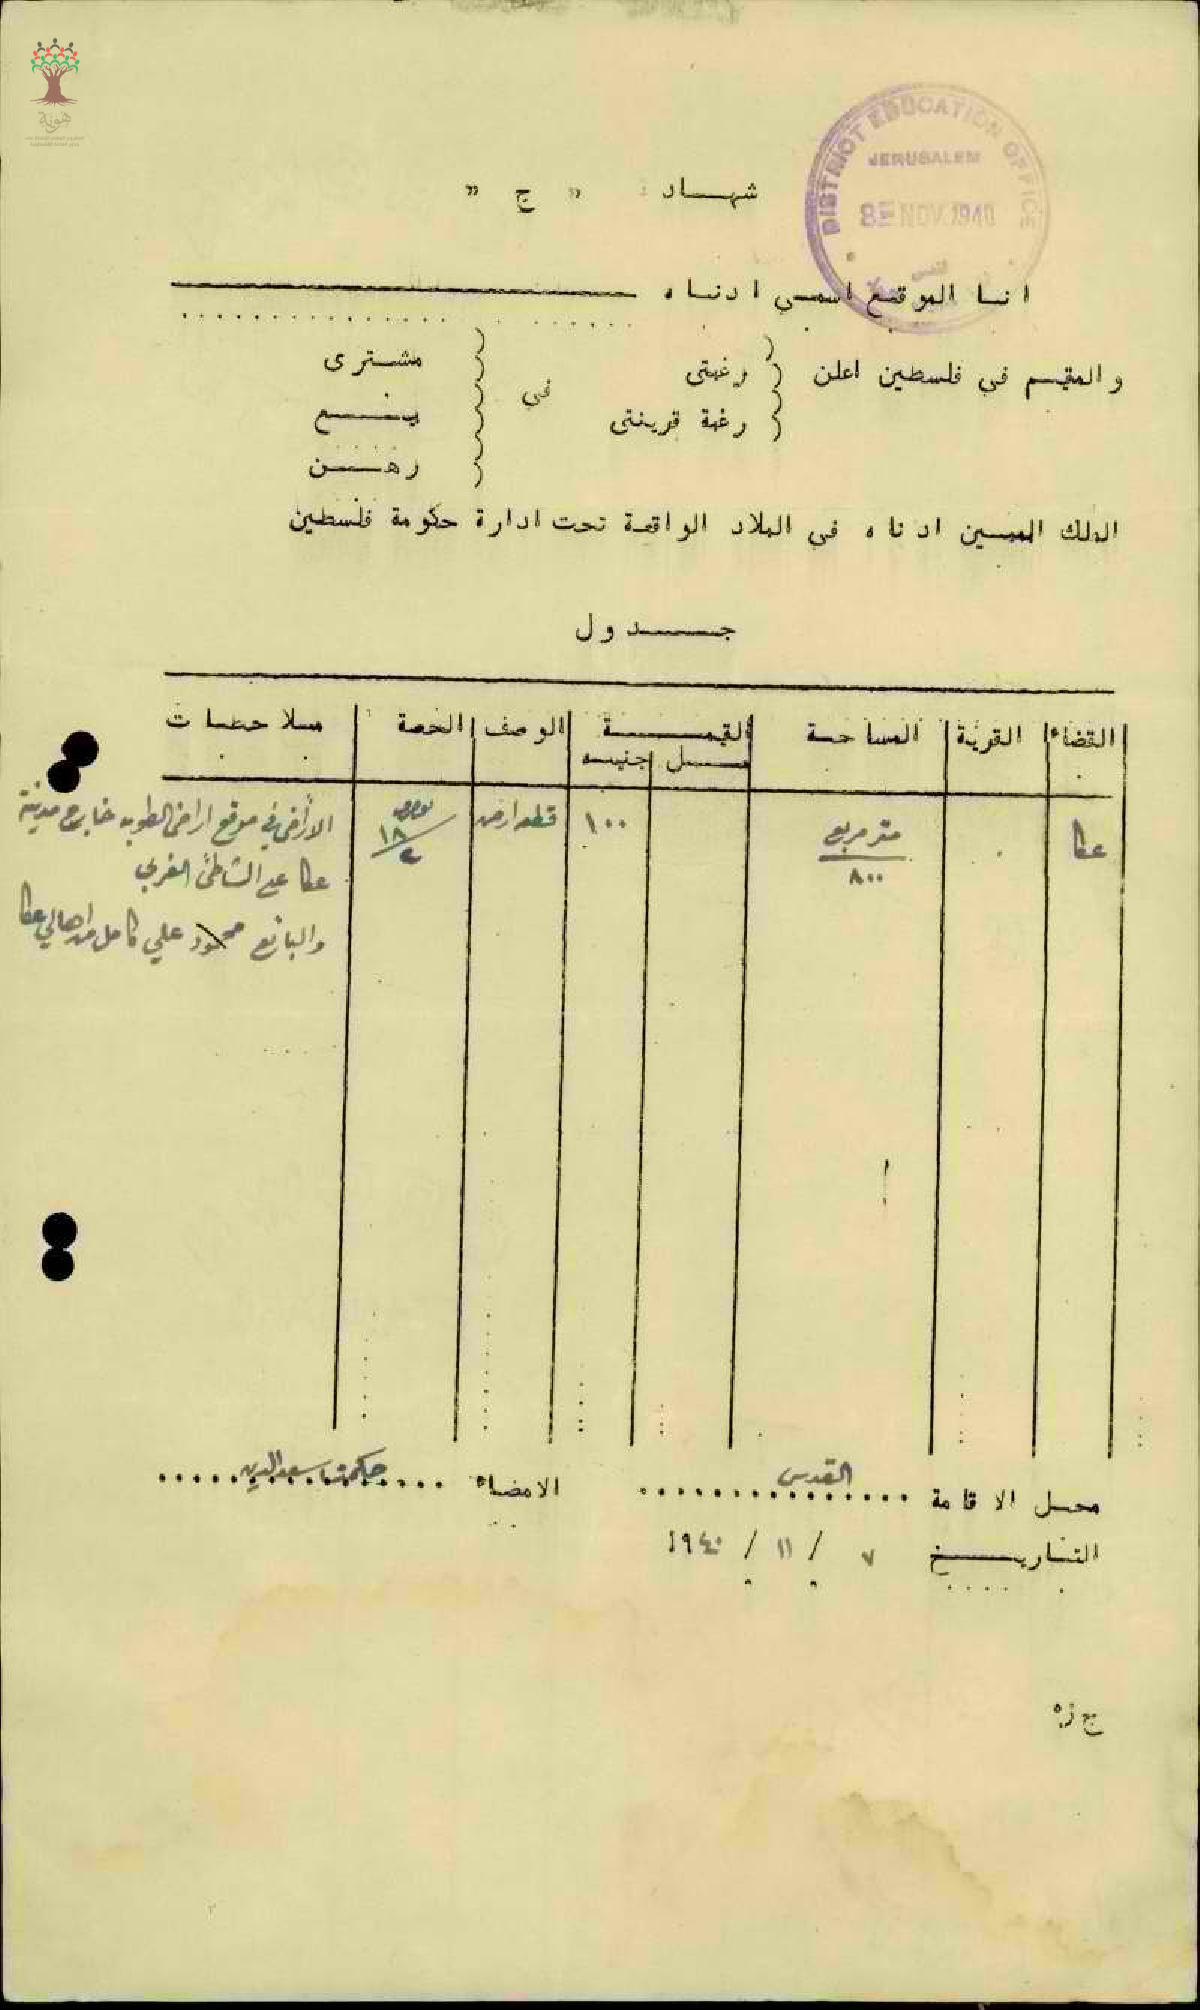 هوية
DISTRICT EDUCATION OFFICE
JERUSALEM
8 NOV. 1940
القدس
شهاد " ج "
انا الموقع اسمي ادناه
والمقيم في فلسطين اعلن
رغبتي
رغبة قرينتي
في
مشترى
بيع
رهن
الملك المبين ادناه في البلاد الواقعة تحت ادارة حكومة فلسطين
جدول
القضاء القرية المساحة القيمة الوصف الحصة ملاحظات
مل جنيه
عكا
متر مربع
٨٠٠
١٠٠
قطعة ارض
١٨
الأرض في موقع اراضي الطوبه خارج مدينة
عكا على الشاطئ الغربي
والبائع محمود علي كامل من اهالي عكا
محل الاقامة القدس الامضاء حكمت سعد الدين
التاريخ ٧ / ١١ / ١٩٤٠